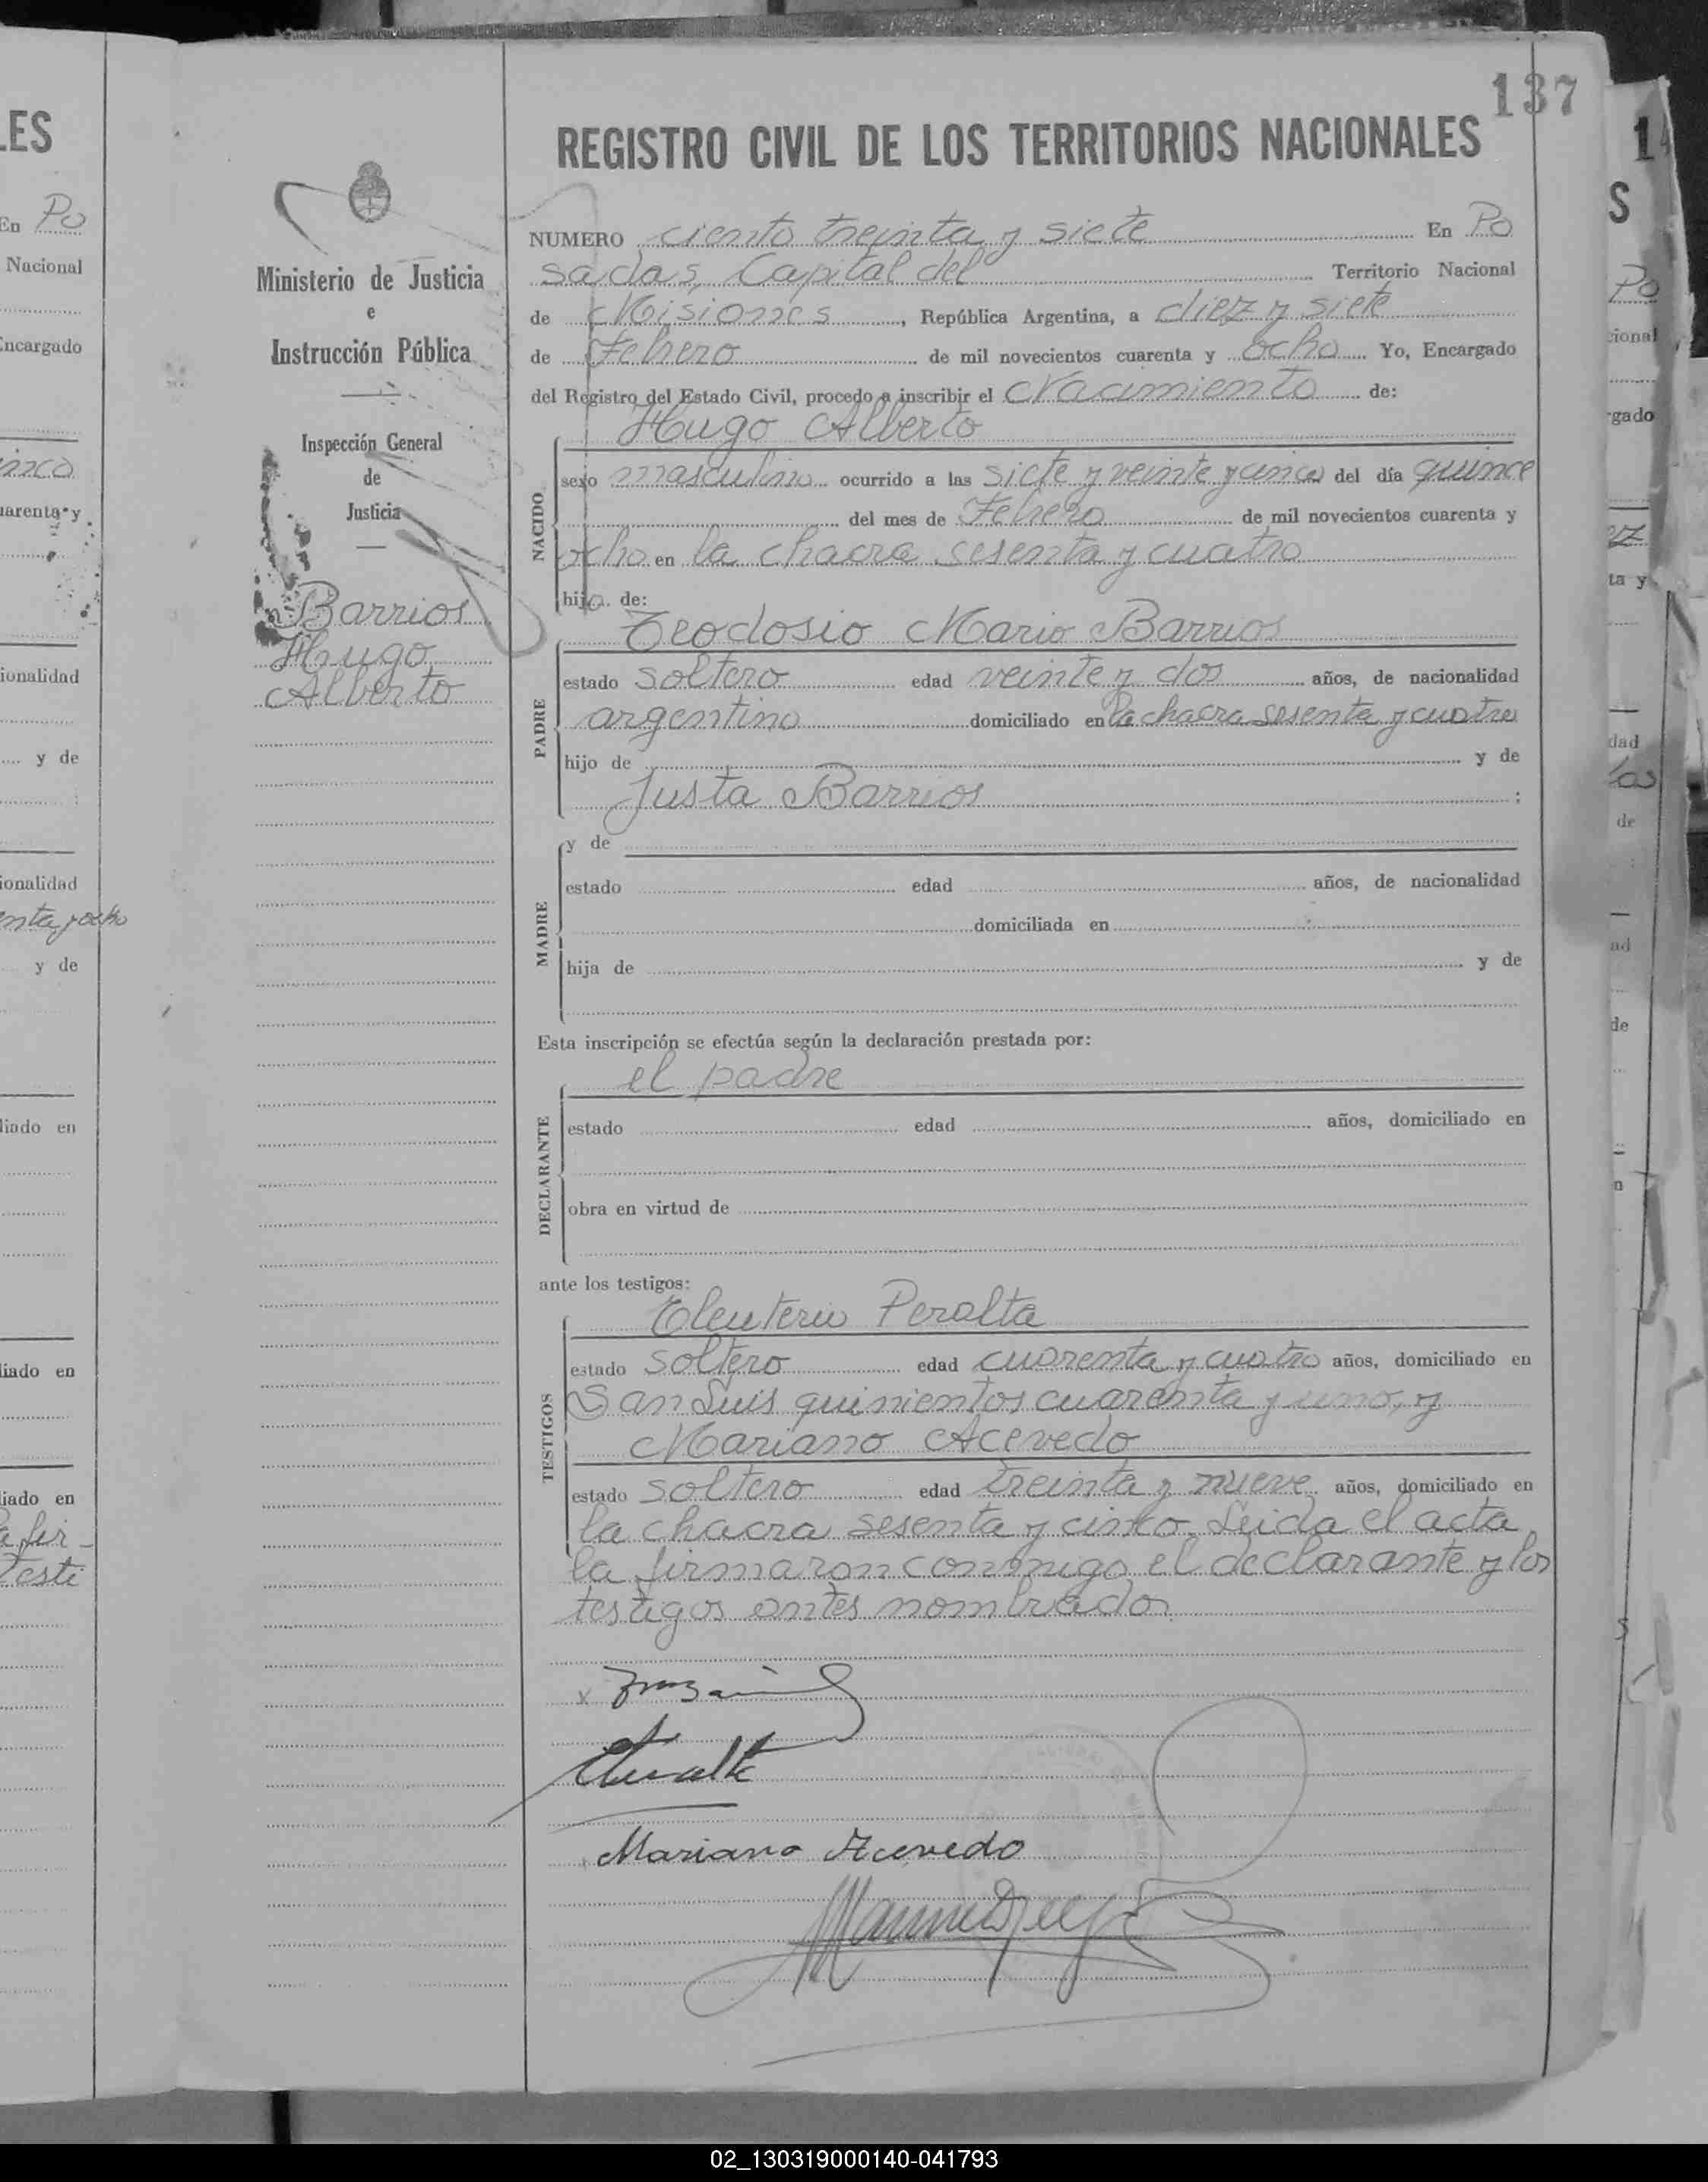 137
REGISTRO CIVIL DE LOS TERRITORIOS NACIONALES
Ministerio de Justicia
e
Instrucción Pública
Inspección General
de
Justicia
Barrios
Hugo
Alberto
NUMERO ciento treinta y siete En Po
sadas, Capital del Territorio Nacional
de Misiones, República Argentina, a diez y siete
de Febrero de mil novecientos cuarenta y ocho Yo, Encargado
del Registro del Estado Civil, procedo a inscribir el Nacimiento de:
Hugo Alberto
NACIDO
sexo masculino ocurrido a las siete y veinte y cinco del día quince
del mes de Febrero de mil novecientos cuarenta y
ocho en la chacra sesenta y cuatro
hijo de:
Teodosio Mario Barrios
PADRE
estado soltero edad veinte y dos años, de nacionalidad
argentino domiciliado en la chacra sesenta y cuatro
hijo de y de
Justa Barrios ;
y de
MADRE
estado edad años, de nacionalidad
domiciliada en
hija de y de
Esta inscripción se efectúa según la declaración prestada por:
el padre
DECLARANTE
estado edad años, domiciliado en
obra en virtud de
ante los testigos:
Eleuterio Peralta
TESTIGOS
estado soltero edad cuarenta y cuatro años, domiciliado en
San Luis quinientos cuarenta y uno, y
Mariano Acevedo
estado soltero edad treinta y nueve años, domiciliado en
la chacra sesenta y cinco. Leida el acta
la firmaron conmigo el declarante y los
testigos antes nombrado.
Mariano Acevedo
02_130319000140-041793